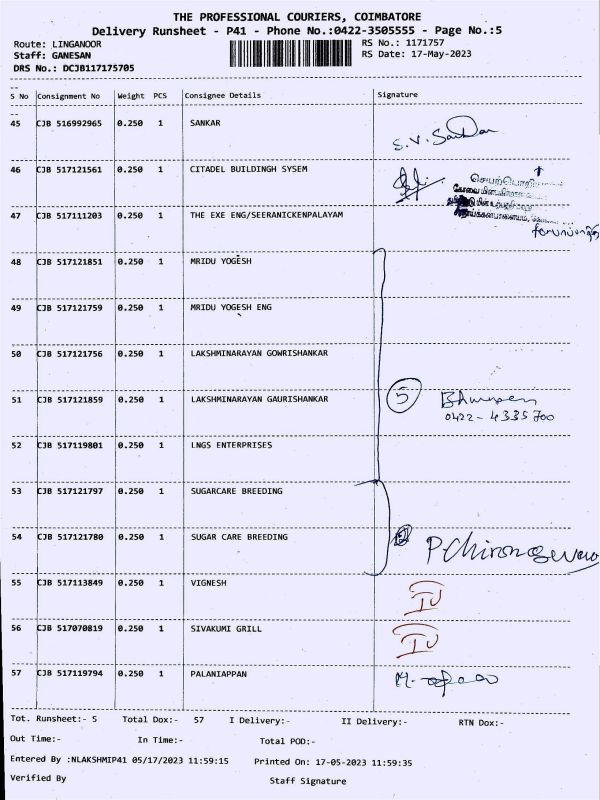 THE PROFESSIONAL COURIERS, COIMBATORE
Delivery Runsheet - P41 - Phone No.:0422-3505555 - Page No.:5
Route: LINGANOOR RS No.: 1171757
Staff: GANESAN RS Date: 17-May-2023
DRS No.: DCJB117175705
S No Consignment No Weight PCS Consignee Details Signature
45 CJB 516992965 0.250 1 SANKAR S.V. Sankar
46 CJB 517121561 0.250 1 CITADEL BUILDINGH SYSEM
47 CJB 517111203 0.250 1 THE EXE ENG/SEERANICKENPALAYAM
48 CJB 517121851 0.250 1 MRIDU YOGESH
49 CJB 517121759 0.250 1 MRIDU YOGESH ENG
50 CJB 517121756 0.250 1 LAKSHMINARAYAN GOWRISHANKAR
51 CJB 517121859 0.250 1 LAKSHMINARAYAN GAURISHANKAR 5
0422-4335700
52 CJB 517119801 0.250 1 LNGS ENTERPRISES
53 CJB 517121797 0.250 1 SUGARCARE BREEDING
54 CJB 517121780 0.250 1 SUGAR CARE BREEDING
55 CJB 517113849 0.250 1 VIGNESH
56 CJB 517070819 0.250 1 SIVAKUMI GRILL
57 CJB 517119794 0.250 1 PALANIAPPAN
Tot. Runsheet:- 5 Total Dox:- 57 I Delivery:- II Delivery:- RTN Dox:-
Out Time:- In Time:- Total POD:-
Entered By :NLAKSHMIP41 05/17/2023 11:59:15 Printed On: 17-05-2023 11:59:35
Verified By Staff Signature